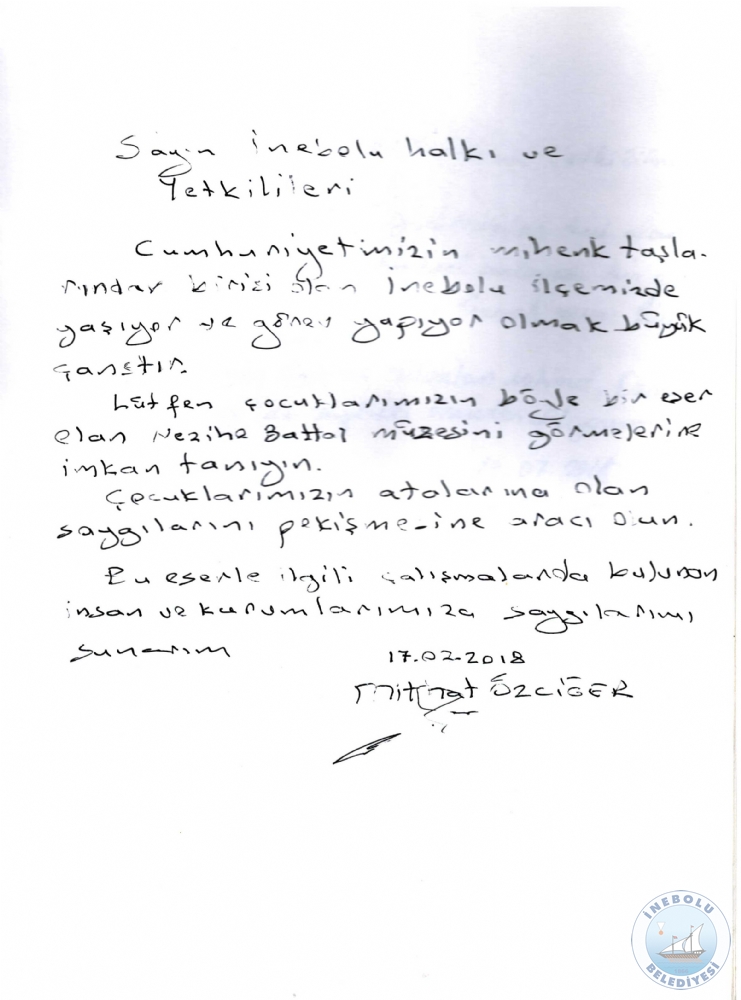 Sayın İnebolu halkı ve
Yetkilileri
Cumhuriyetimizin mihenk taşla-
rından birisi olan İnebolu ilçemizde
yaşıyor ve görev yapıyor olmak büyük
şanstır.
Lütfen çocuklarımızın böyle bir eser
olan Nezihe Battal müzesini görmelerine
imkan tanıyın.
Çocuklarımızın atalarına olan
saygılarını pekişmesine aracı olun.
Bu eserle ilgili çalışmalarda bulunan
insan ve kurumlarımıza saygılarımı
sunarım
17.02.2018
Mithat ÖZCİĞER
İNEBOLU
BELEDİYESİ